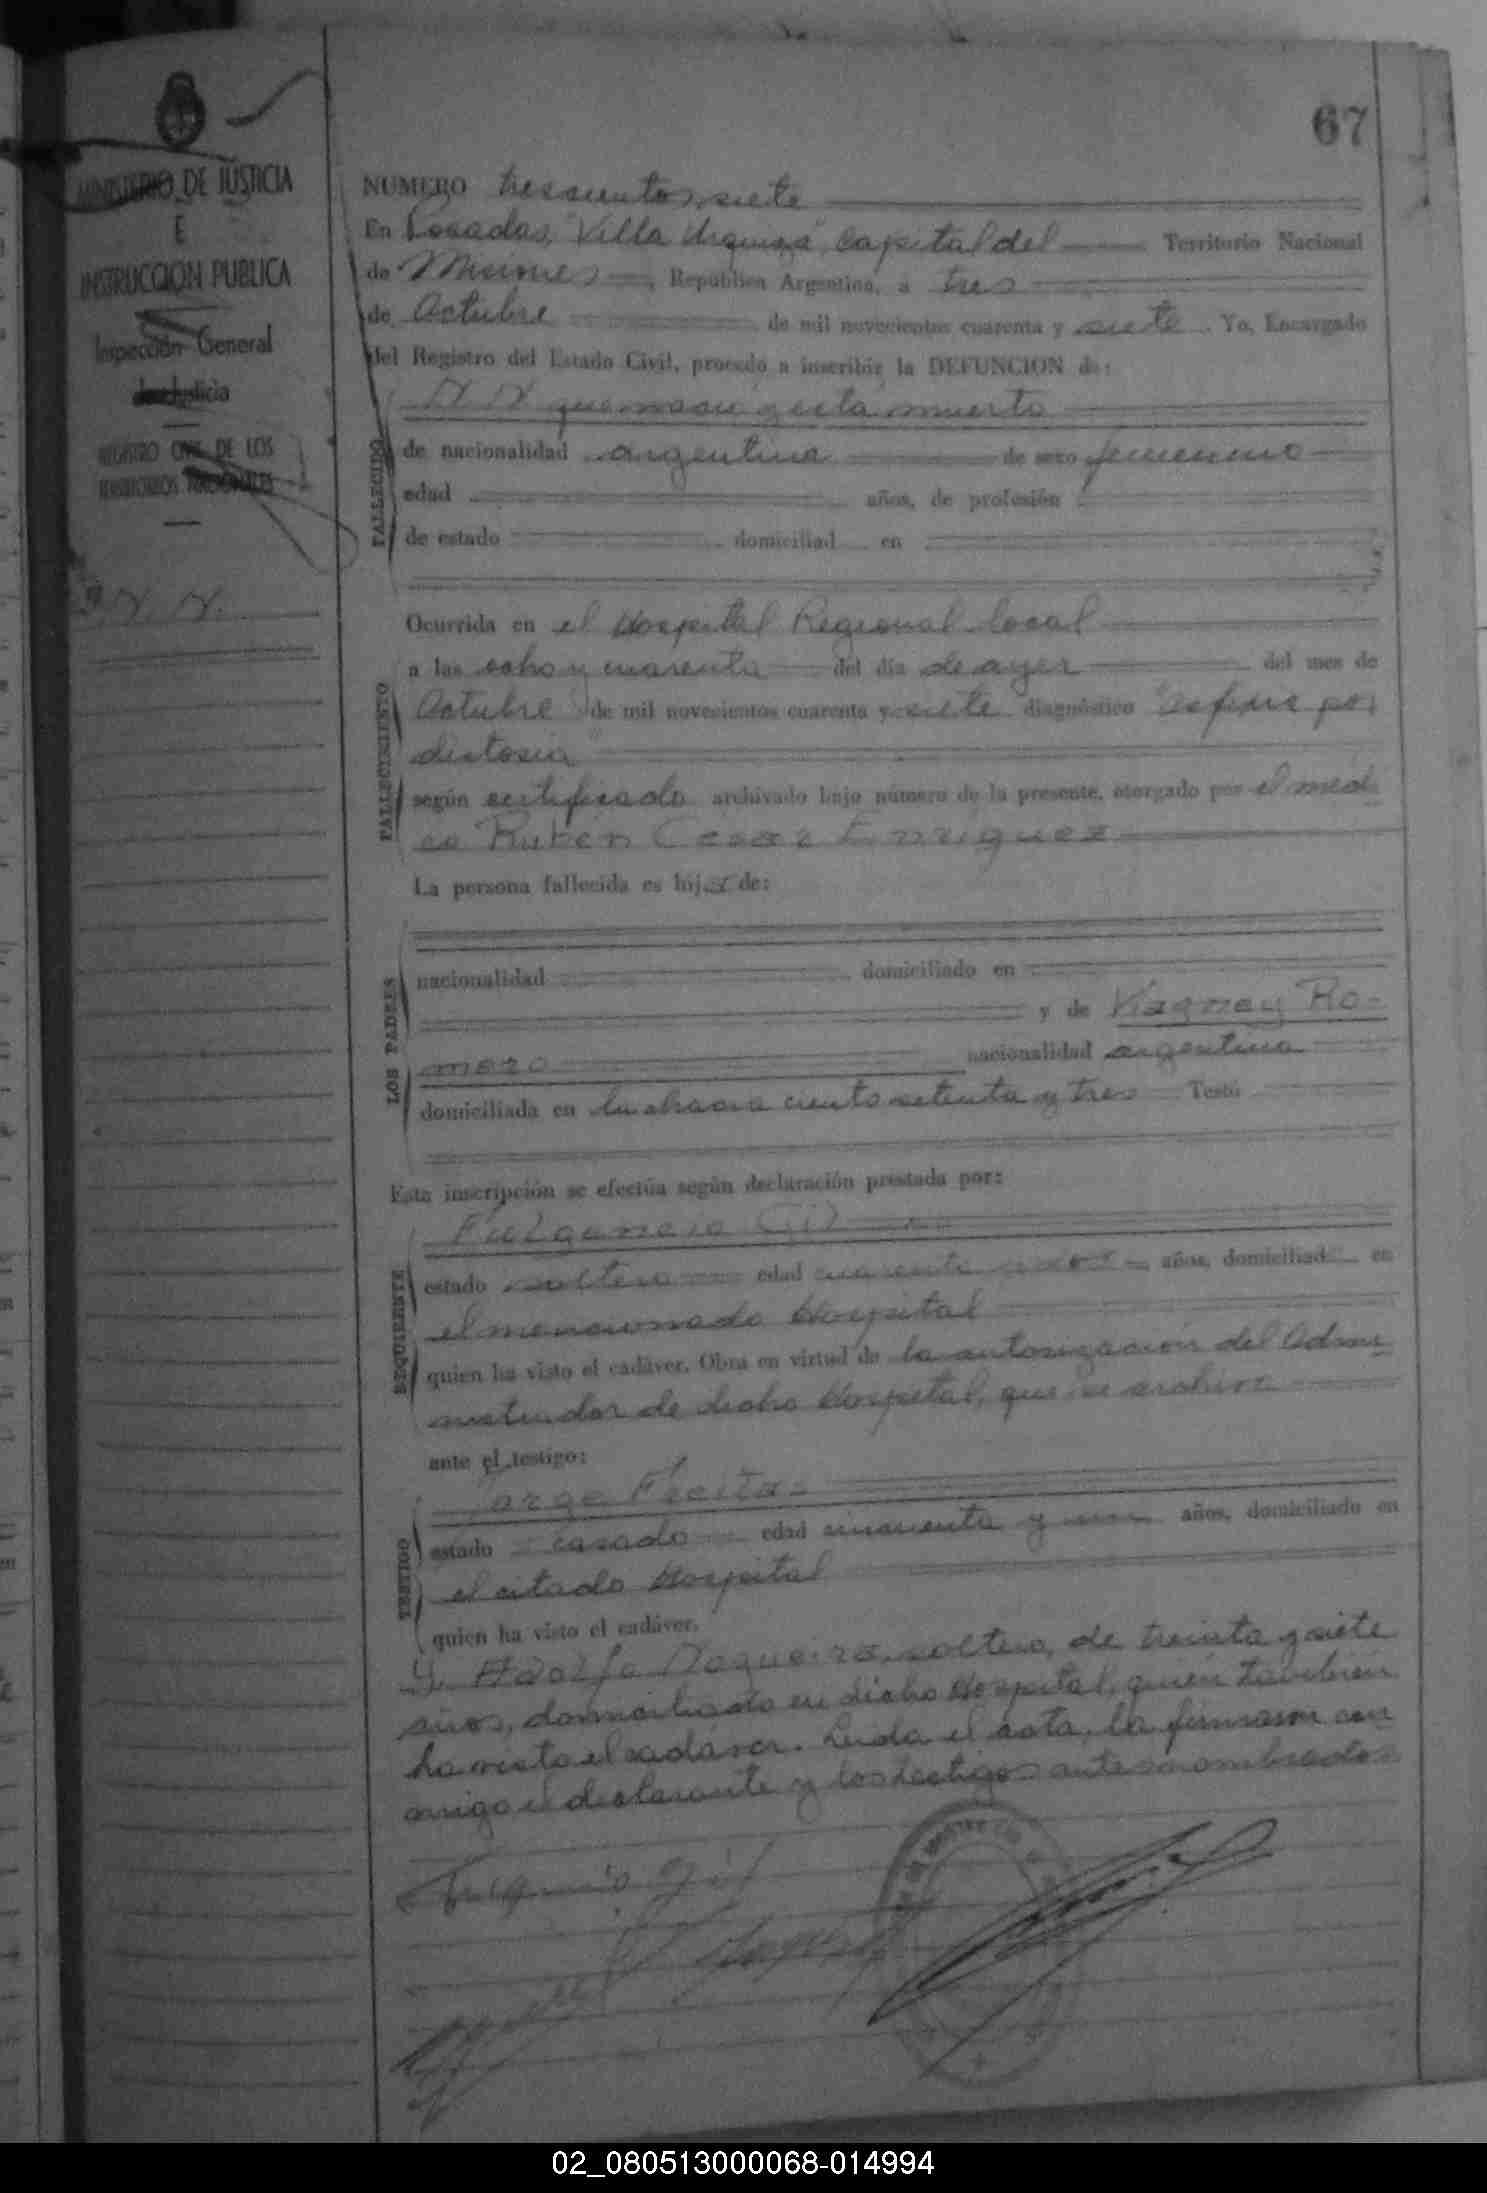 67
MINISTERIO DE JUSTICIA
E
INSTRUCCION PUBLICA
Inspección General
de Justicia
REGISTRO CIVIL DE LOS
TERRITORIOS NACIONALES
N. N.
NUMERO trescientos siete
En Posadas, "Villa Urquiza", Capital del Territorio Nacional
de Misiones, República Argentina, a tres
de Octubre de mil novecientos cuarenta y siete. Yo, Encargado
del Registro del Estado Civil, procedo a inscribir la DEFUNCION de:
FALLECIDO
N N que nació muerta
de nacionalidad argentina de sexo femenino
edad años, de profesión
de estado domiciliad en
FALLECIMIENTO
Ocurrida en el Hospital Regional local
a las ocho y cuarenta del día de ayer del mes de
Octubre de mil novecientos cuarenta y siete diagnóstico "asfixia por
distosia"
según certificado archivado bajo número de la presente, otorgado por el médi-
co Rubén César Enriquez
La persona fallecida es hija de:
LOS PADRES
nacionalidad domiciliado en
y de Ro-
mero nacionalidad argentina
domiciliada en la chacra ciento setenta y tres Testó
Esta inscripción se efectúa según declaración prestada por:
REQUIRENTE
Fulgencio Gil
estado soltero edad cuarenta años, domiciliad en
el mencionado Hospital
quien ha visto el cadáver. Obra en virtud de la autorización del Admi-
nistrador de dicho Hospital, que se archiva
ante el testigo:
TESTIGO
Jorge Freitas
estado casado edad cincuenta y un años, domiciliado en
el citado Hospital
quien ha visto el cadáver.
Y Adolfo Noqueira, soltero, de treinta y siete
años, domiciliado en dicho Hospital, quien también
ha visto el cadáver. Leida el acta, la firmaron con
migo el declarante y los testigos antes nombrados
Gil
02_080513000068-014994